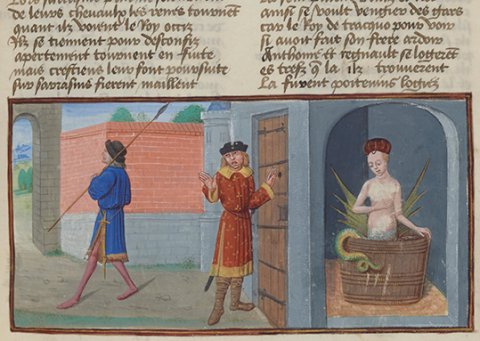 de leurs chevaulx les renes tournent
quant ilz voient le Roy occiz
Ilz se tiennent pour desconfiz
apertement tournent en fuite
mais crestiens leur font poursuite
sur sarrasins fierent maillent
ainsi se voult vengier des
car le Roy de tracquo pour voir
si avoit fait son frere ardoir
Anthoine et regnault se logerent
la ilz trouverent
La furent poitevins logiez